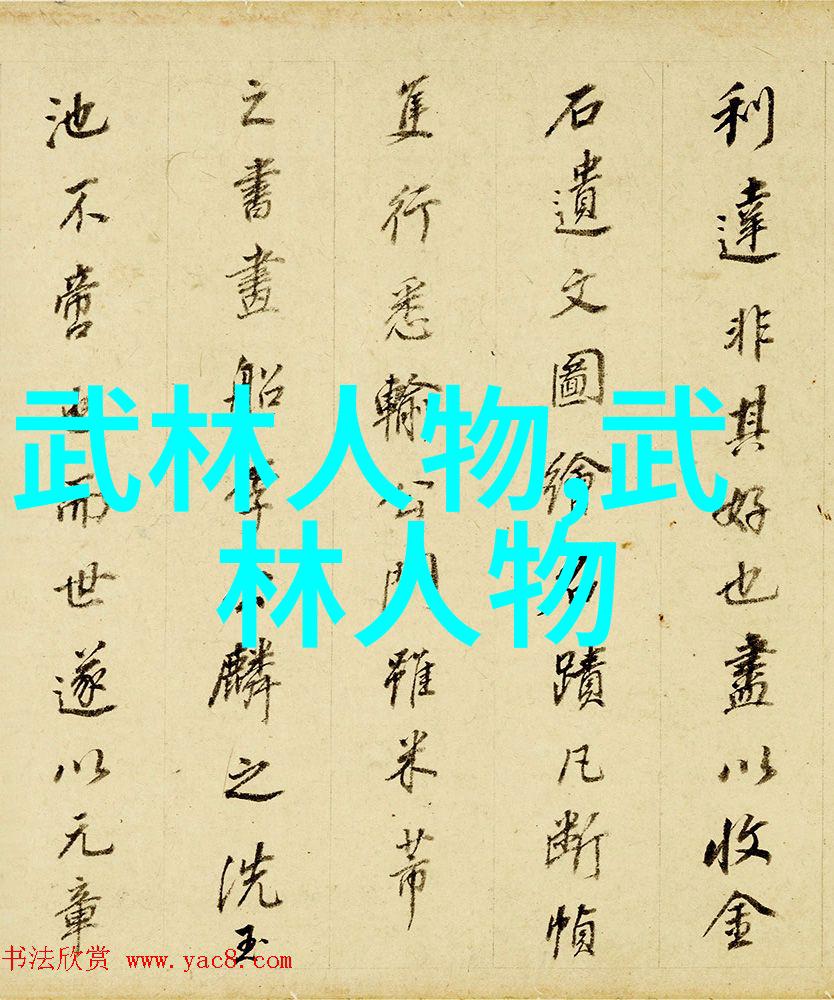 利達非其好也盡以收金
石遺文圖繪名蹟凡斷幀
隻行悉輸公門雖米芾
之書畫船李公麟之洗玉
池不啻而世遂以元章
武林人物,武
林人物
书法欣赏 www.yac8.com